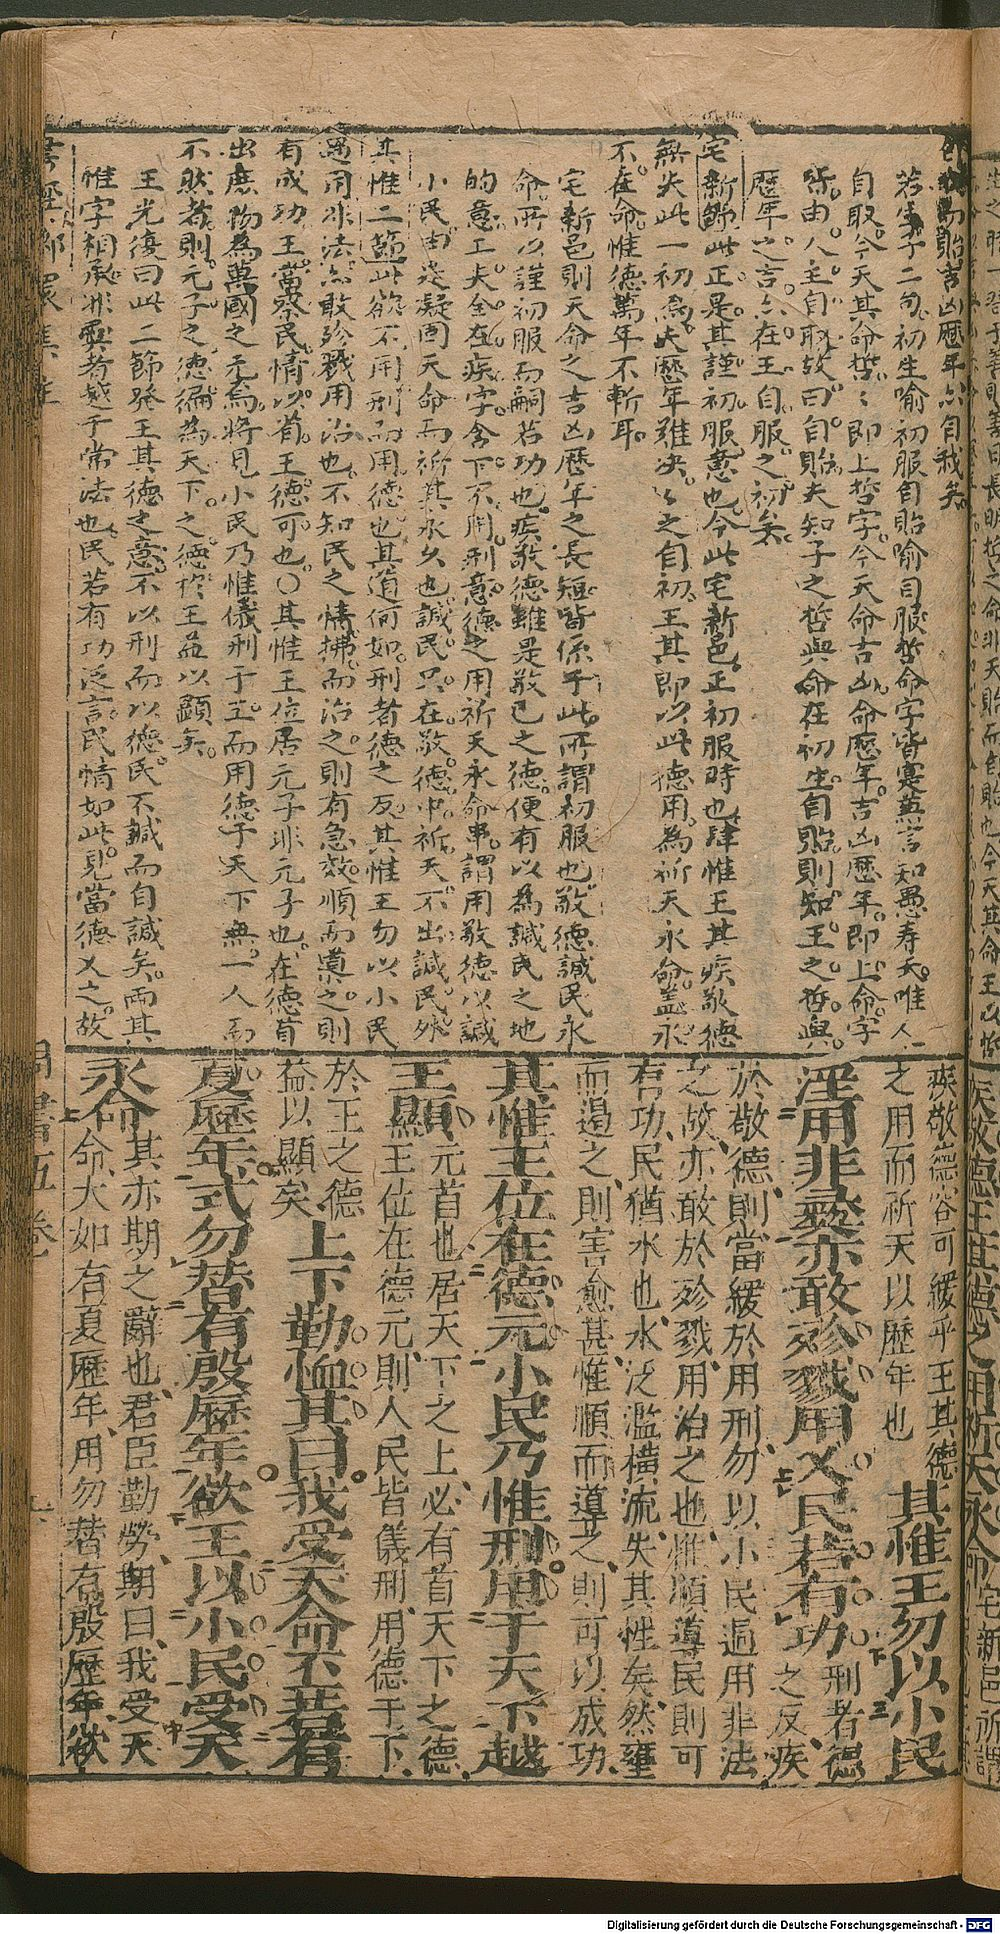 貽吉凶歷年亦自我矣
若生子二句初生喻初服自貽喻自服哲命字皆實言知愚壽夭唯人
自取今天其命哲：即上哲字今天命吉凶命歷年吉凶歷年即上命字
皆由人主自取故曰自貽夫知子之哲與命在初生自貽則知王之哲與
歷年之言亦在王自服之初矣
宅新節此正是其謹初服意也今此宅新邑正初服時也肆惟王其疾敬德
無失此一初為失歷年雖決以之自初王其即以此德用為祈天永命蓋永
不在命惟德萬年不斬耳
宅新邑則天命之吉凶歷年之長短皆係于此所謂初服也敬德諴民永
命所以謹初服而嗣若功也疾敬德雖是敬已之德便有以為諴民之地
的意工夫全在疾字含下不用刑意德之用祈天永命串謂用敬德以諴
小民由是凝固天命而祈其永久也諴民只在敬德中祈天不出諴民外
其惟二節此欲不用刑而用德也其道何如刑者德之反其惟王勿以小民
過用非法亦敢殄戮用治也不知民之情拂而治之則有急效順而導之則
有成功王當察民情以省王德可也○其惟王位居元子非元子也在德首
出庶物為萬國之元焉將見小民乃惟儀刑于王而用德于天下無一人而
不然者則元子之德徧為天下之德於王益以顯矣
王光復曰此二節發王其德之意不以刑而以德民不諴而自諴矣兩其
惟字相承非彝者越乎常法也民若有功泛言民情如此見當德乂之故
疾敬德容可緩乎王其德
之用而祈天以歷年也
其惟王勿以小民
淫用非彝亦敢殄戮用乂民若有功
刑者德
之反疾
於敬德則當緩於用刑勿以小民過用非法
之故亦敢於殄戮用治之也惟順導民則可
有功民猶水也水泛濫橫流失其性矣然壅
而遏之則害愈甚惟順而導之則可以成功
其惟王位在德元小民乃惟刑用于天下越
王顯
元首也居天下之上必有首天下之德
王位在德元則人民皆儀刑用德于下
於王之德
益以顯矣
上下勤恤其曰我受天命丕若有
夏歷年式勿替有殷歷年欲王以小民受天
永命
其亦期之辭也君臣勤勞期曰我受天
命大如有夏歷年用勿替有殷歷年欲
Digitalisierung gefördert durch die Deutsche Forschungsgemeinschaft - DFG